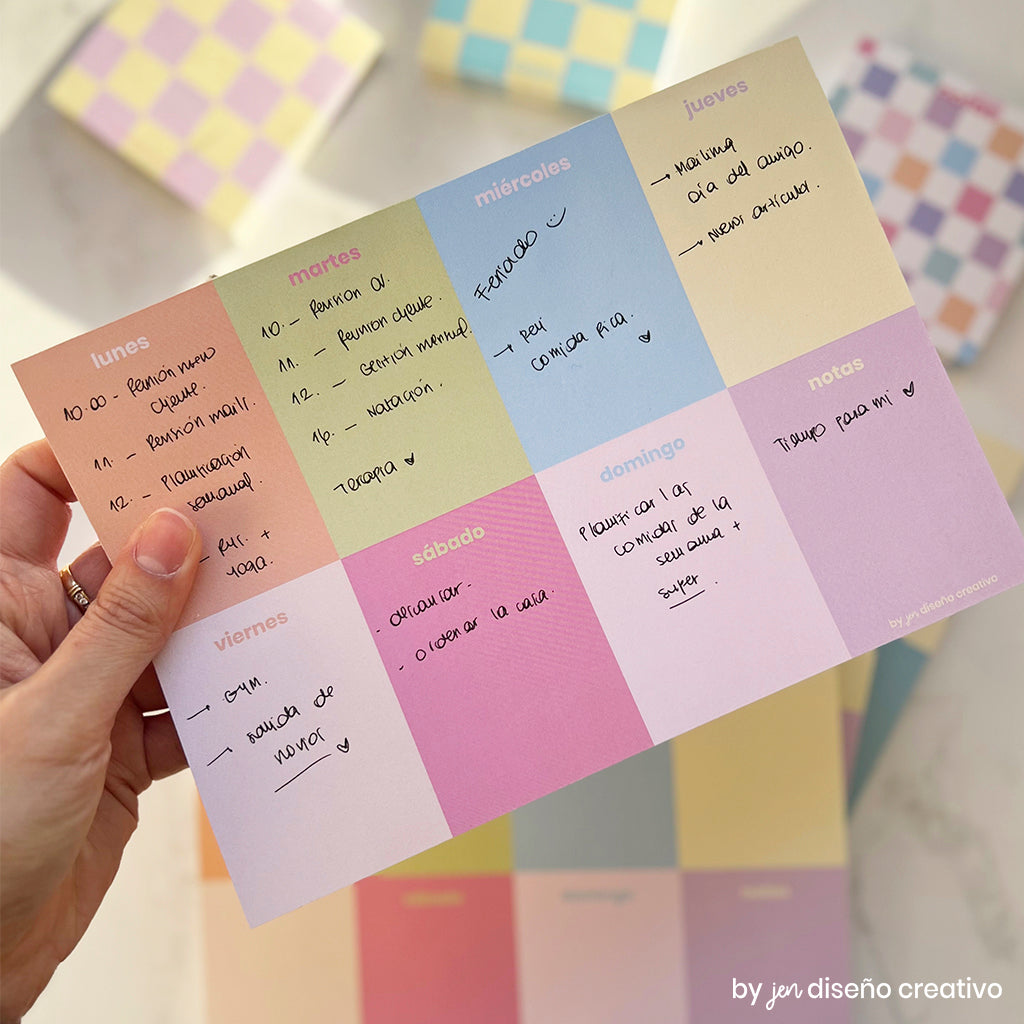 lunes
10.00 - Reunión nuevo
cliente.
11. - Revisión mails.
12. - Planificación
semanal.
- +
yoga.
martes
10. - Revisión
11. - Reunión cliente.
12. - Gestión mensual.
16. - Natación.
Terapia
miércoles
Feriado :)
→ Peli
comida rica.
jueves
→ Mailing
Día del amigo.
→ Nuevos artículos.
viernes
→ GYM.
→ Salida de
novios
sábado
- descansar.
- Ordenar la casa.
domingo
Planificar las
comidas de la
semana +
super.
notas
Tiempo para mi
by jen diseño creativo
sábado
domingo
notas
by jen diseño creativo